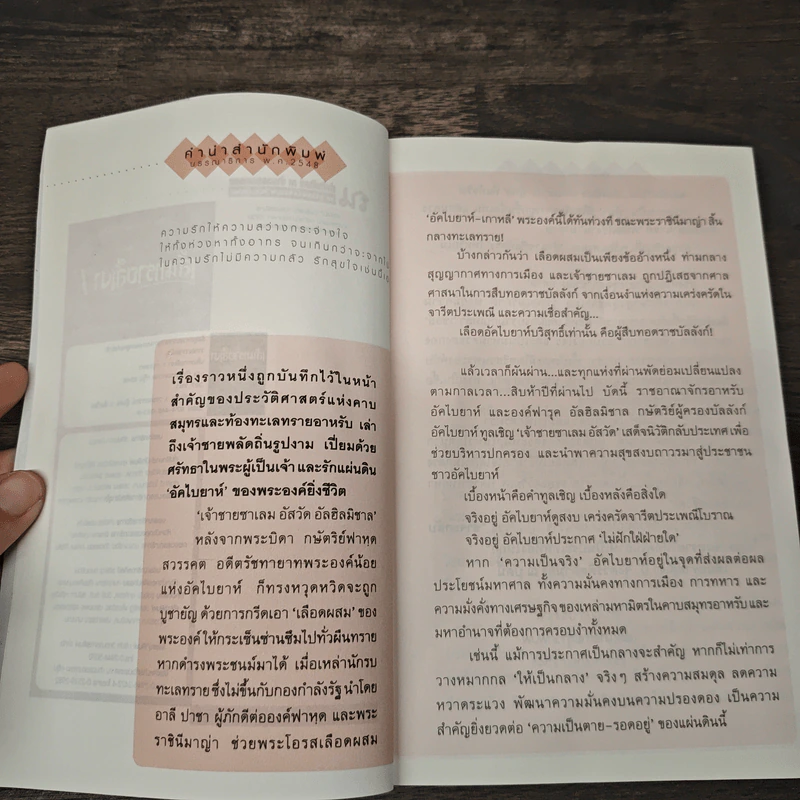 คำนำสำนักพิมพ์
บรรณาธิการ พ.ศ.2548
ความรักให้ความสว่างกระจ่างใจ
ให้ทั้งห่วงหาทั้งอาทร จนเกินกว่าจะจากไ
ในความรักไม่มีความกลัว รักสุขใจเช่นนี้เอ
เรื่องราวหนึ่งถูกบันทึกไว้ในหน้า
สำคัญของประวัติศาสตร์แห่งคาบ
สมุทรและท้องทะเลทรายอาหรับ เล่า
ถึงเจ้าชายพลัดถิ่นรูปงาม เปี่ยมด้วย
ศรัทธาในพระผู้เป็นเจ้า และรักแผ่นดิน
'อัคไบยาห์' ของพระองค์ยิ่งชีวิต
'เจ้าชายซาเลม อัสวัด อัลฮิลมิชาล'
หลังจากพระบิดา กษัตริย์ฟาหฺด
สวรรคต อดีตรัชทายาทพระองค์น้อย
แห่งอัคไบยาห์ ก็ทรงหวุดหวิดจะถูก
บูชายัญ ด้วยการกรีดเอา 'เลือดผสม' ของ
พระองค์ให้กระเซ็นซ่านซึมไปทั่วผืนทราย
หากดำรงพระชนม์มาได้ เมื่อเหล่านักรบ
ทะเลทราย ซึ่งไม่ขึ้นกับกองกำลังรัฐ นำโดย
อาลี ปาชา ผู้ภักดีต่อองค์ฟาหฺด และพระ
ราชินีมาญ่า ช่วยพระโอรสเลือดผสม
'อัคไบยาห์-เกาหลี' พระองค์นี้ได้ทันท่วงที ขณะพระราชินีมาญ่า สิ้น
กลางทะเลทราย!
บ้างกล่าวกันว่า เลือดผสมเป็นเพียงข้ออ้างหนึ่ง ท่ามกลาง
สุญญากาศทางการเมือง และเจ้าชายซาเลม ถูกปฏิเสธจากศาล
ศาสนาในการสืบทอดราชบัลลังก์ จากเงื่อนงำแห่งความเคร่งครัดใน
จารีตประเพณี และความเชื่อสำคัญ...
เลือดอัคไบยาห์บริสุทธิ์เท่านั้น คือผู้สืบทอดราชบัลลังก์!
แล้วเวลาก็ผันผ่าน...และทุกแห่งที่ผ่านพัดย่อมเปลี่ยนแปลง
ตามกาลเวลา...สิบห้าปีที่ผ่านไป บัดนี้ ราชอาณาจักรอาหรับ
อัคไบยาห์ และองค์ฟารุค อัลฮิลมิชาล กษัตริย์ผู้ครองบัลลังก์
อัคไบยาห์ ทูลเชิญ 'เจ้าชายซาเลม อัสวัด' เสด็จนิวัติกลับประเทศ เพื่อ
ช่วยบริหารปกครอง และนำพาความสุขสงบถาวรมาสู่ประชาชน
ชาวอัคไบยาห์
เบื้องหน้าคือคำทูลเชิญ เบื้องหลังคือสิ่งใด
จริงอยู่ อัคไบยาห์ดูสงบ เคร่งครัดจารีตประเพณีโบราณ
จริงอยู่ อัคไบยาห์ประกาศ 'ไม่ฝักใฝ่ฝ่ายใด'
หาก 'ความเป็นจริง' อัคไบยาห์อยู่ในจุดที่ส่งผลต่อผล
ประโยชน์มหาศาล ทั้งความมั่นคงทางการเมือง การทหาร และ
ความมั่งคั่งทางเศรษฐกิจ ของเหล่ามหามิตรในคาบสมุทรอาหรับ และ
มหาอำนาจที่ต้องการครอบงำทั้งหมด
เช่นนี้ แม้การประกาศเป็นกลางจะสำคัญ หากก็ไม่เท่าการ
วางหมากกล 'ให้เป็นกลาง' จริงๆ สร้างความสมดุล ลดความ
หวาดระแวง พัฒนาความมั่นคงบนความปรองดอง เป็นความ
สำคัญยิ่งยวดต่อ 'ความเป็นตาย-รอดอยู่' ของแผ่นดินนี้